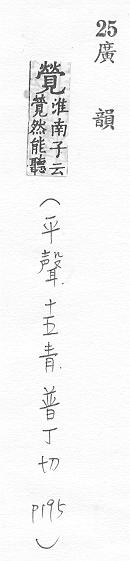 25廣韻
覮淮南子云
覮然能聽
(平聲.十五青.普丁切 p195)